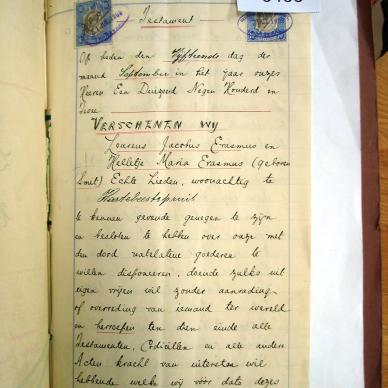 Testament
Op heden den Vijftiende dag der
maand September in het jaar onzes
Heeren Een Duizend Negen Honderd en
Twee
VERSCHENEN WIJ
Lourens Jacobus Erasmus en
Helletje Maria Erasmus (geboren
Smet) Echte Lieden, woonachtig te
Hartebeestspruit
te kennen gevende genegen te zijn
en besloten te hebben over onze met
den dood natelatene goederen te
willen disponeeren, doende zulks uit
eigen vrijen wil zonder aanrading
of overreding van iemand ter wereld
en herroepen ten dien einde alle
Testamenten, Codicillen en alle andere
Acten kracht van uitersten wil
hebbende welke wij vóór dato dezes